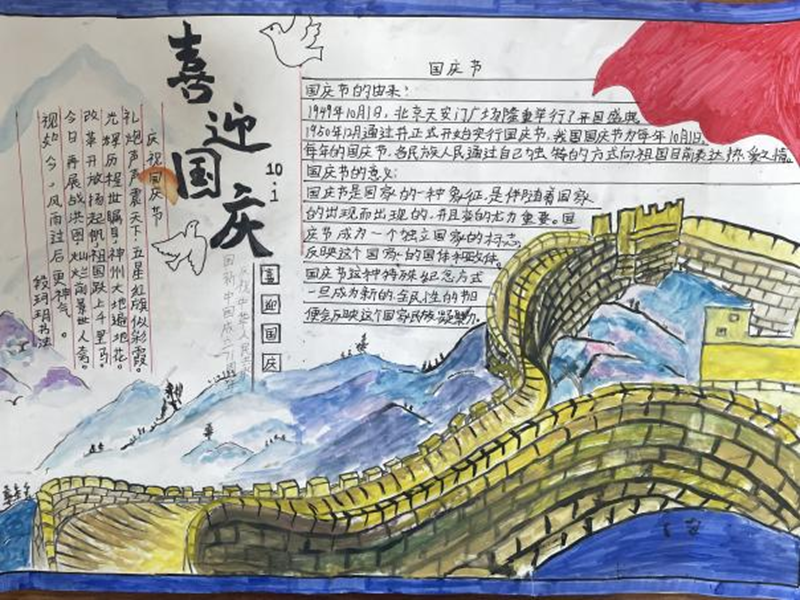 喜迎国庆
10.1
国庆节
国庆节的由来：
1949年10月1日，北京天安门广场隆重举行了开国盛典。
1950年12月通过并正式开始实行国庆节，我国国庆节为每年10月1日。
每年的国庆节，各民族人民通过自己独特的方式向祖国目前表达热爱之情。
国庆节的意义：
国庆节是国家的一种象征，是伴随着国家
的出现而出现的，并且变的尤为重要。国
庆节成为一个独立国家的标志，
反映这个国家的国体和政体。
国庆节这种特殊纪念方式
一旦成为新的全民性的节日
便会反映这个国家民族凝聚力。
庆祝国庆节
礼炮声声震天下，五星红旗似彩霞。
光辉历程世瞩目，神州大地遍地花。
改革开放扬起帆，祖国跃上千里马。
今日再展战洪图，灿烂前景世人夸。
视如今，风雨过后更神气。
书法
喜迎国庆